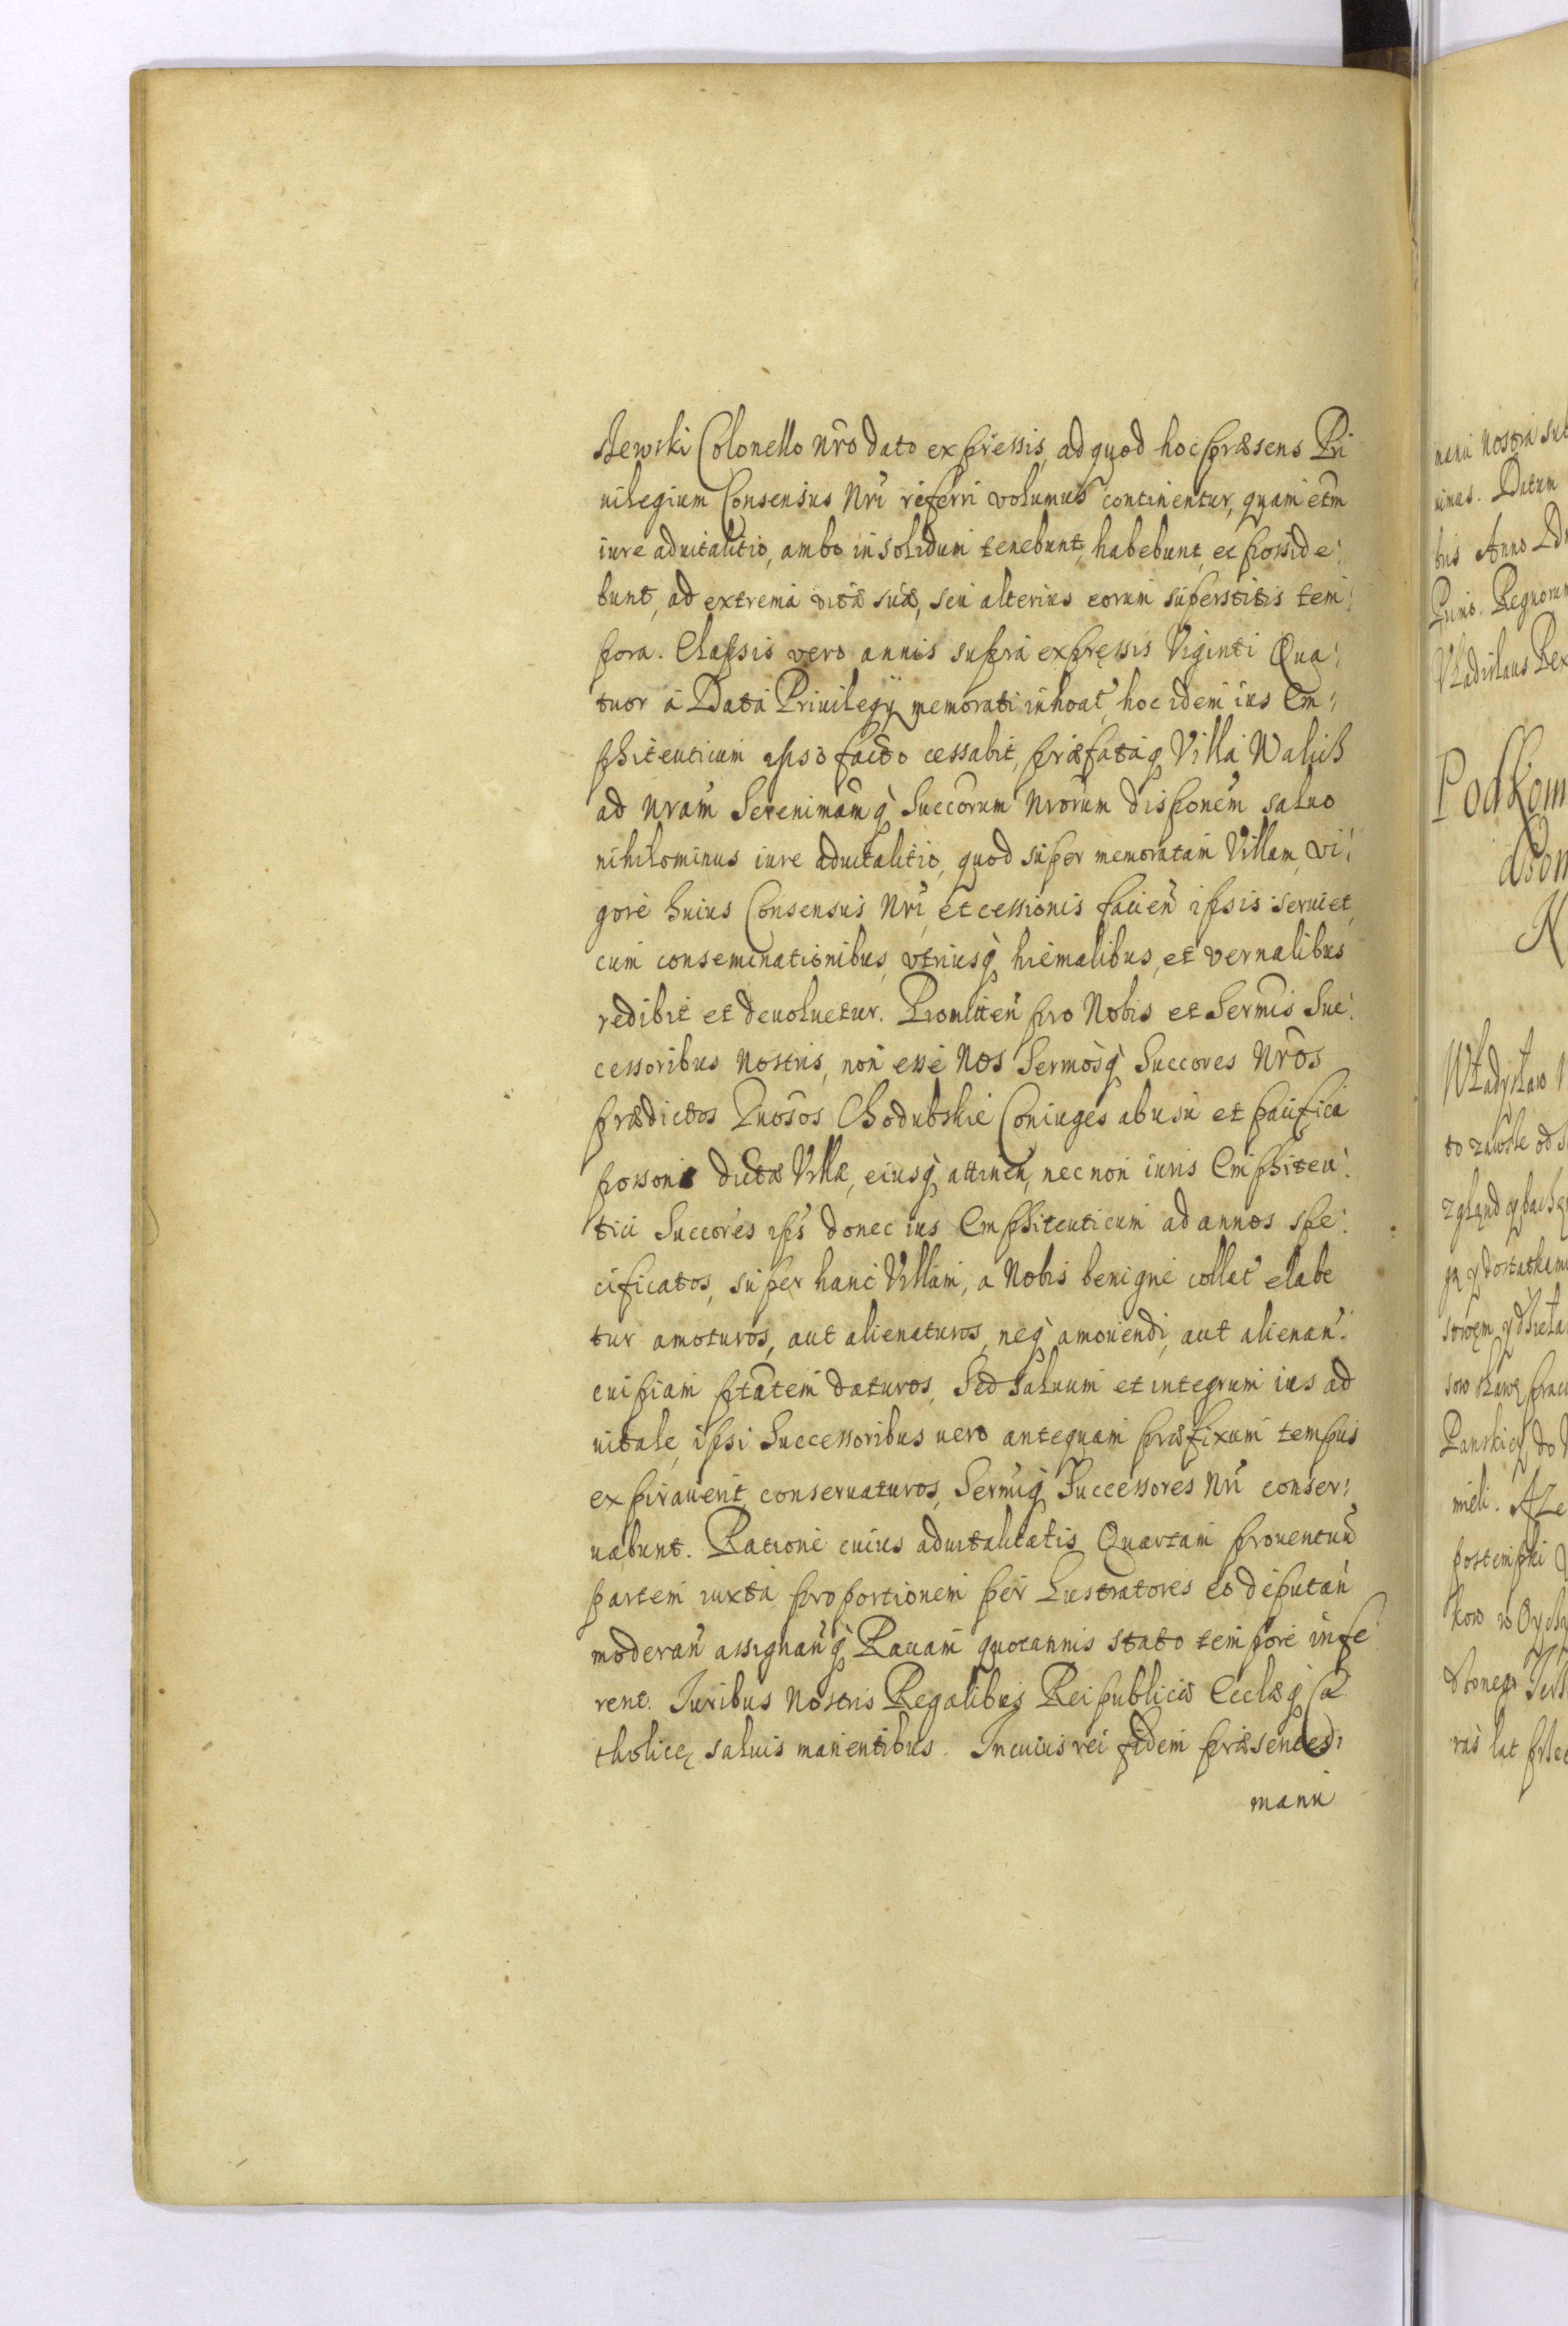 Stewski Colonello Nrõ dato expressis, ad quod hoc præsens Pri
uilegium Consensus Nri referri volumus continentur, quam etm
iure aduitalitio, ambo in solidum tenebunt, habebunt, et posside:
bunt, ad extrema vitæ suæ, seu alterius eorum superstitis tem:
pora. Elapsis vero annis supra expręssis Viginti Qua:
tuor á Data Priuilegÿ memorati inhoat, hoc idem ius Em:
phiteuticum ipso facto cessabit, præfataq Villa Walich
ad Nram Serenimamq Succorum Nrorum disponem saluo
nihilominus iure aduitalitio, quod super memoratam Villam, vi:
gore huius Consensus Nri, et cessionis facień ipsis seruiet,
cum conseminationibus, vtriusq hiemalibus, et vernalibus
redibit et deuoluetur. Promitteń pro Nobis et Sermis Suc:
cessoribus Nostris, non esse Nos Sermosq Succores Nros
prædictos Gnosos Chodubskie Coniuges ab usu et pacifica
possone dictæ Villæ, eiusq attineń, nec non iuris Emphiteu:
tici Succores ips donec ius Emphiteuticum ad annos spe:
cificatos, super hanc Villam, a Nobis benigne collat elabe
tur amoturos, aut alienaturos, neq amouendi, aut alienań:
cuipiam ptãtem daturos, Sed saluum et integrum ius ad
uitale, ipsi Successoribus uero antequam præfixum tempus
expirauerit, conseruaturos, Sermiq Successores Nri conser:
uabunt. Ratione cuius aduitalitatis Quartam prouentuũ
partem iuxta proportionem per Lustratores eo deputań
moderań assignańq Rauam quotannis stato tempore infe
rent. Iuribus Nostris Regalibus Reipublicæ Ecclæq Ca
tholicę saluis manentibus. In cuius rei fidem præsentes:
manu
manu nostra sub
nimus. Datum
bris Anno Dn
Primo. Regnorum
Vladislaus Rex
Podkom
Władysław
to zawsze od
postempki